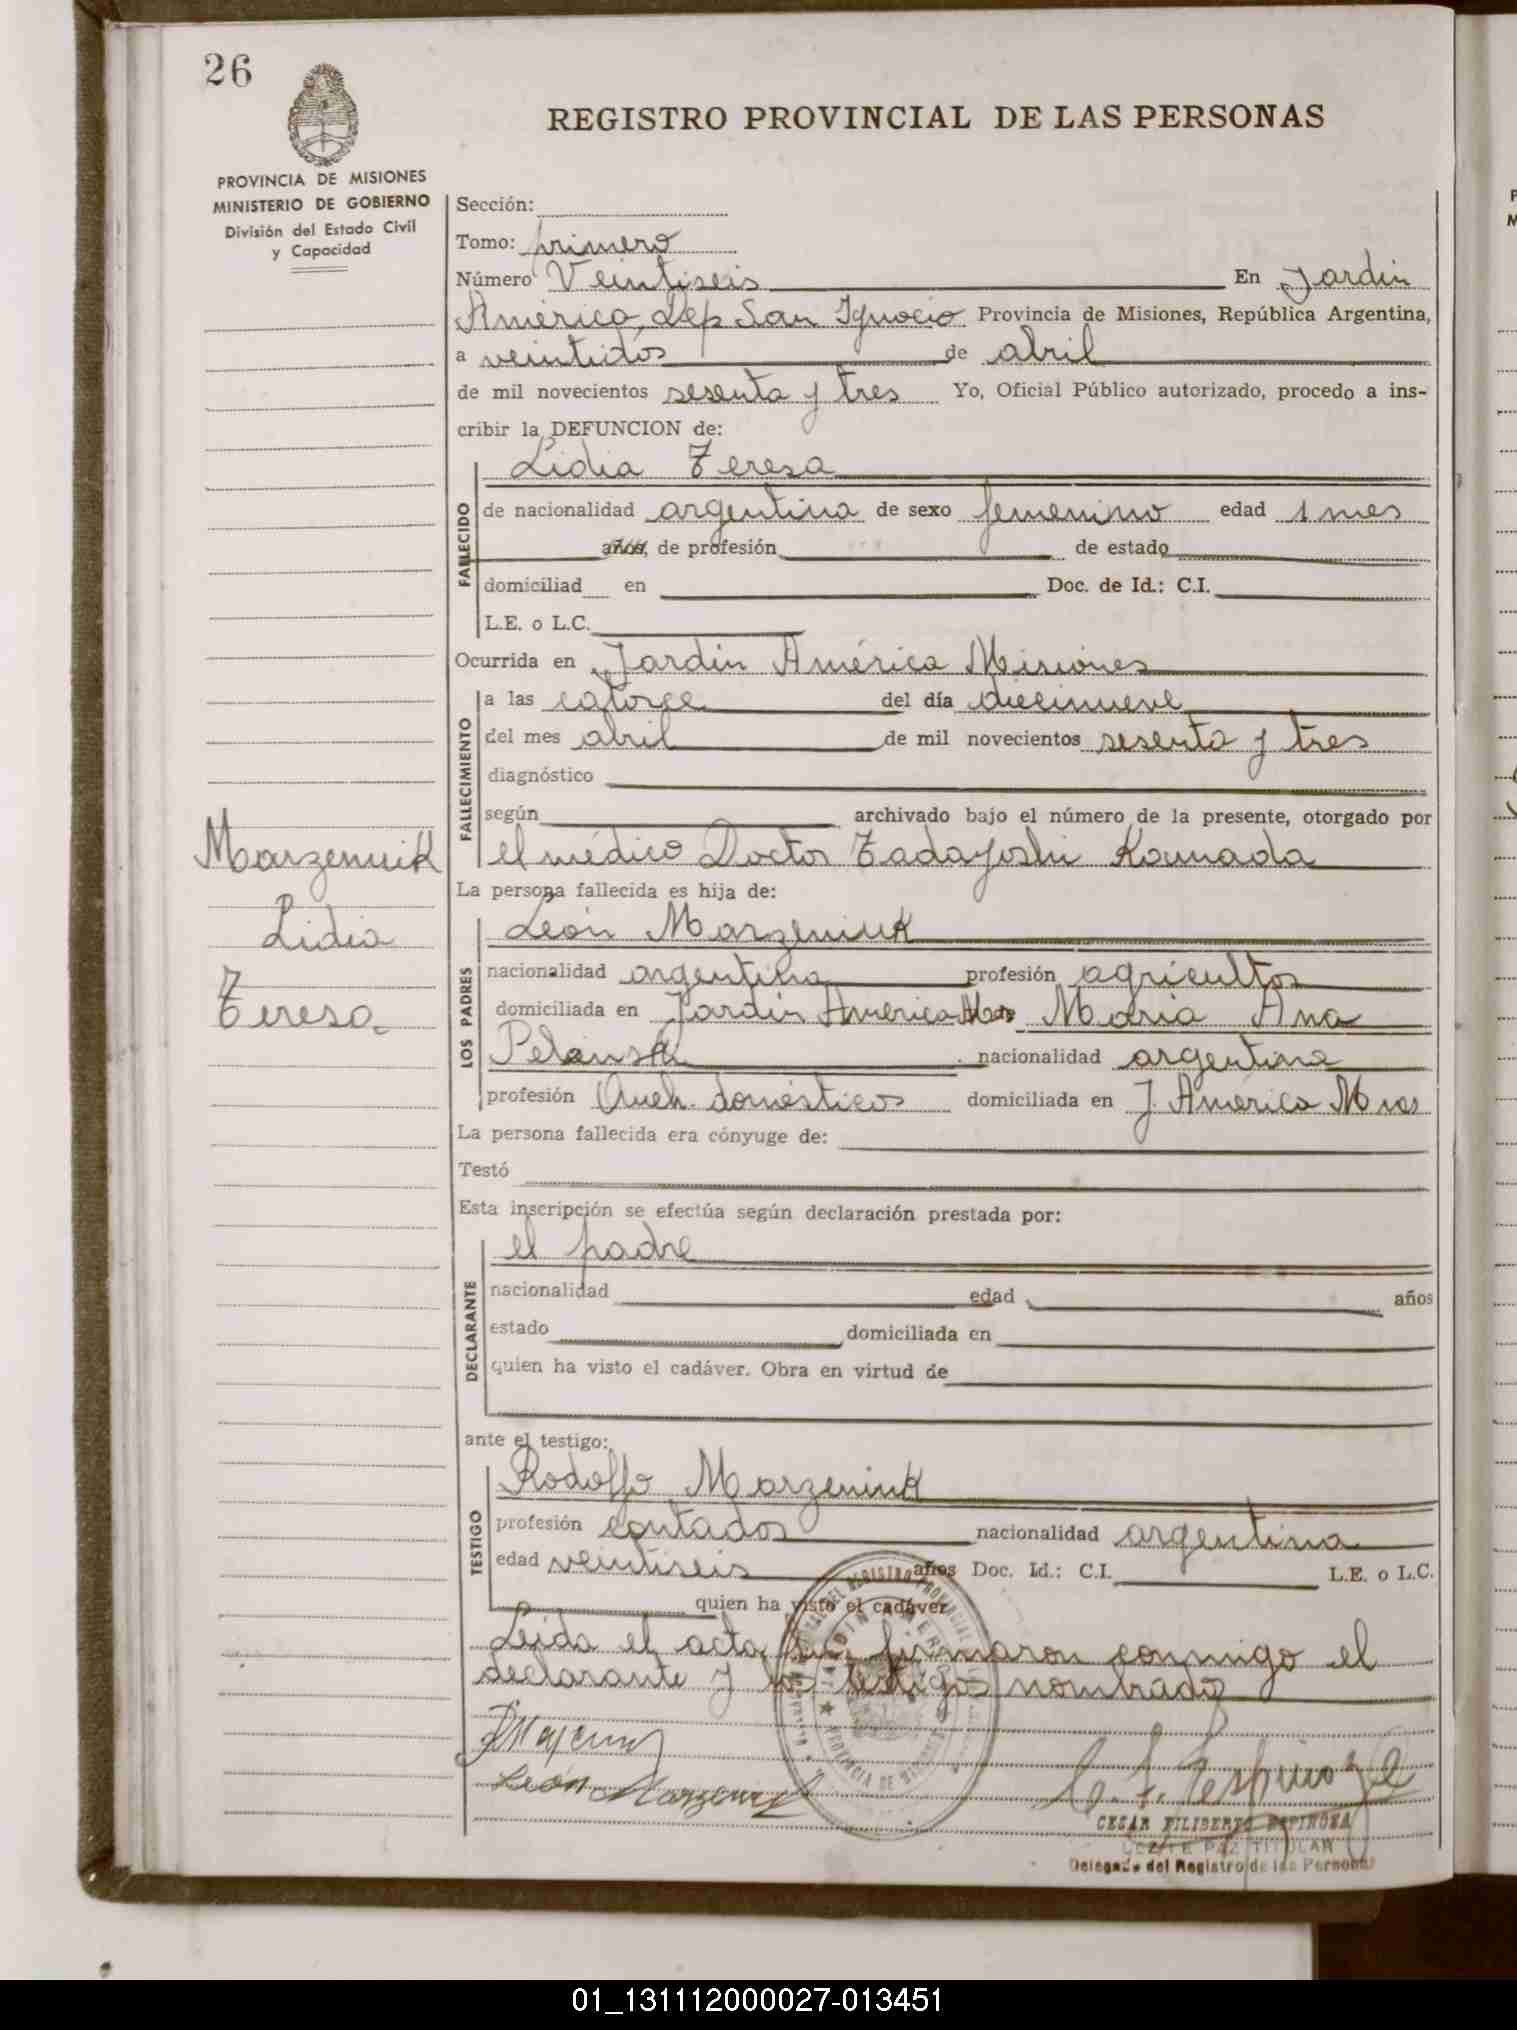 26
REGISTRO PROVINCIAL DE LAS PERSONAS
PROVINCIA DE MISIONES
MINISTERIO DE GOBIERNO
División del Estado Civil
y Capacidad
Sección:
Tomo: primero
Número Veintiseis En Jardin
América, Dep San Ignacio Provincia de Misiones, República Argentina,
a veintidos de abril
de mil novecientos sesenta y tres Yo, Oficial Público autorizado, procedo a ins-
cribir la DEFUNCION de:
FALLECIDO
Lidia Teresa
de nacionalidad argentina de sexo femenino edad 1 mes
años, de profesión de estado
domiciliad en Doc. de Id.: C.I.
L.E. o L.C.
Ocurrida en Jardin América Misiones
FALLECIMIENTO
a las catorce del día diecinueve
del mes abril de mil novecientos sesenta y tres
diagnóstico
según archivado bajo el número de la presente, otorgado por
el médico Doctor Tadayoshi Kamada
Marzeniuk
Lidia
Teresa
La persona fallecida es hija de:
LOS PADRES
León Marzeniuk
nacionalidad argentina profesión agricultor
domiciliada en Jardin América Mnes María Ana
nacionalidad argentina
profesión Queh. domésticos domiciliada en J. América Mnes
La persona fallecida era cónyuge de:
Testó
Esta inscripción se efectúa según declaración prestada por:
DECLARANTE
el padre
nacionalidad edad años
estado domiciliada en
quien ha visto el cadáver. Obra en virtud de
ante el testigo:
TESTIGO
Rodolfo Marzeniuk
profesión contador nacionalidad argentina
edad veintiseis años Doc. Id.: C.I. L.E. o L.C.
quien ha visto el cadáver
Leida el acta la firmaron conmigo el
declarante y los testigos nombrados
León Marzeniuk
CESAR FILIBERTO ESPINOZA
JUEZ DE PAZ TITULAR
Delegado del Registro de las Personas
01_131112000027-013451